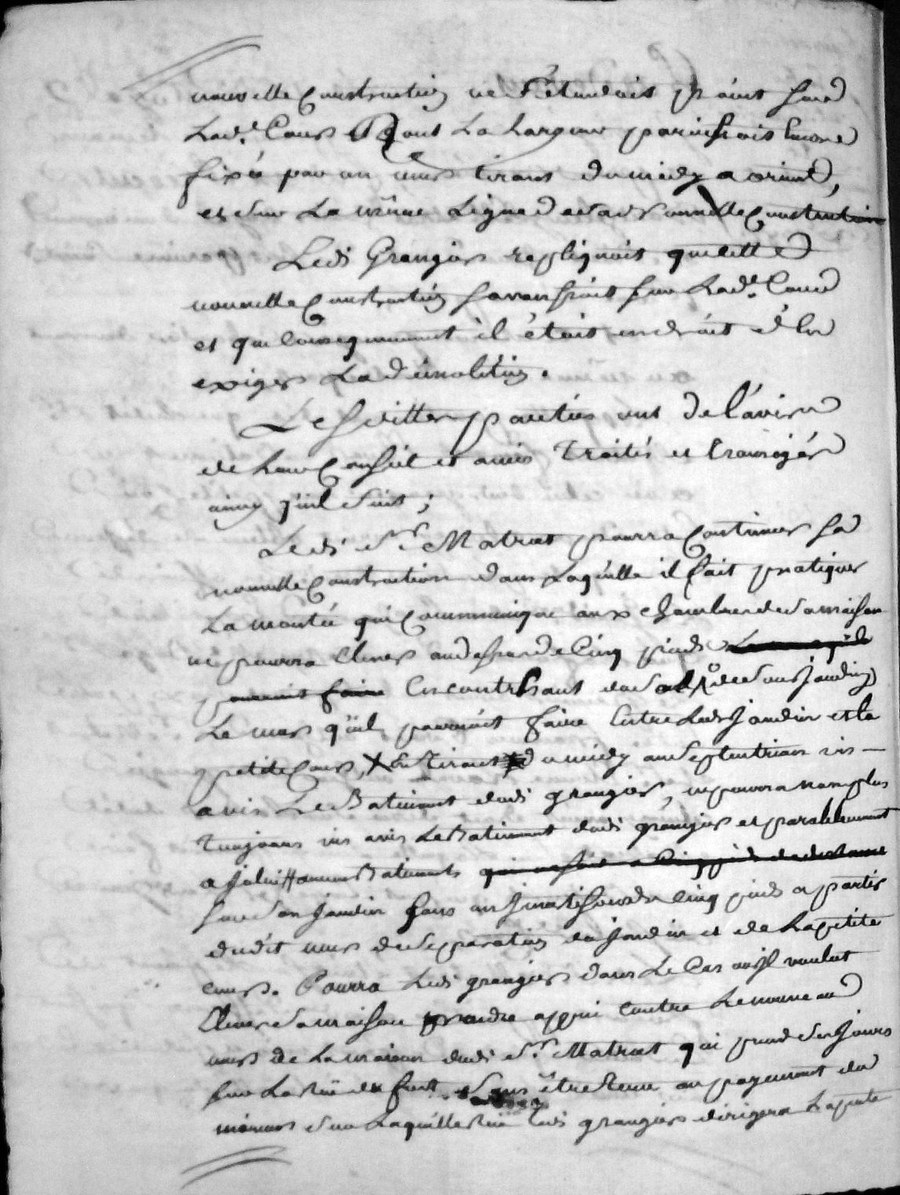 nouvelle Construction ne S'etendoit point sur
Lad.e Cour dont La Largeur paroissoit Encore
fixée par un mur tirant du midy a orient,
et sur La même Ligne de sad nouvelle Construction
Ledi Grangier repliquoit que cette
nouvelle Construction s'avansçoit sur Lad.e Cour
et que Conséquemment il étoit en droit d'En
exiger La démolition.
Lesdittes parties ont de l'avis
de Leur Conseil et amis Traités et Transigés
ainsy qu'il suit;
Ledi S.r Matrat pourra Continuer sa
nouvelle Construction dans Laquelle il fait pratiquer
La montée qui Communique aux chambres de sa maison
ne pourra Elever au dessus de Cinq pieds
En contrehaut du sol de son Jardin
Le mur qu'il pourroit faire Entre Led Jardin et la
petite Cour, tirant du midy au Septentrion vis
a vis Le Batiment dudi grangier, ne pourra non plus
Toujours vis avis Le Batiment dudi grangier et parallelement
a Jcelui aucuns Batiments qui ne soit a Cinq pieds de distance
sur son Jardin sans un de Cinq pieds a partir
dudit mur de separation du Jardin et de La petite
Cour. Pourra Ledi grangier dans Le Cas ou il voulut
Elever sa maison prendre appui Contre Le nouveau
mur de La maison dudi S.r Matrat qui prend ses Jours
sur La Rüe sans être tenu au payement du
mur sur Laquelle Rüe Ledi grangier dirigera La pente